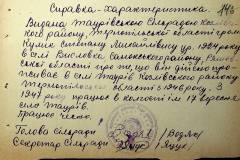 Справка-характеристика
Видана Таурівською сільрадою Козлів-
ського району, Тернопільської області гром.
Кулик Степану Михайловичу ур. 1924 року
в селі Висловка
області про те, що він дійсно про-
живає в селі Таурів Козлівського району
Тернопільської області з 1946 року. З
1947 року працює в колгоспі ім 17 вересня
село Таурів.
Працює чесно.
Голова сільради
Секретар сільради